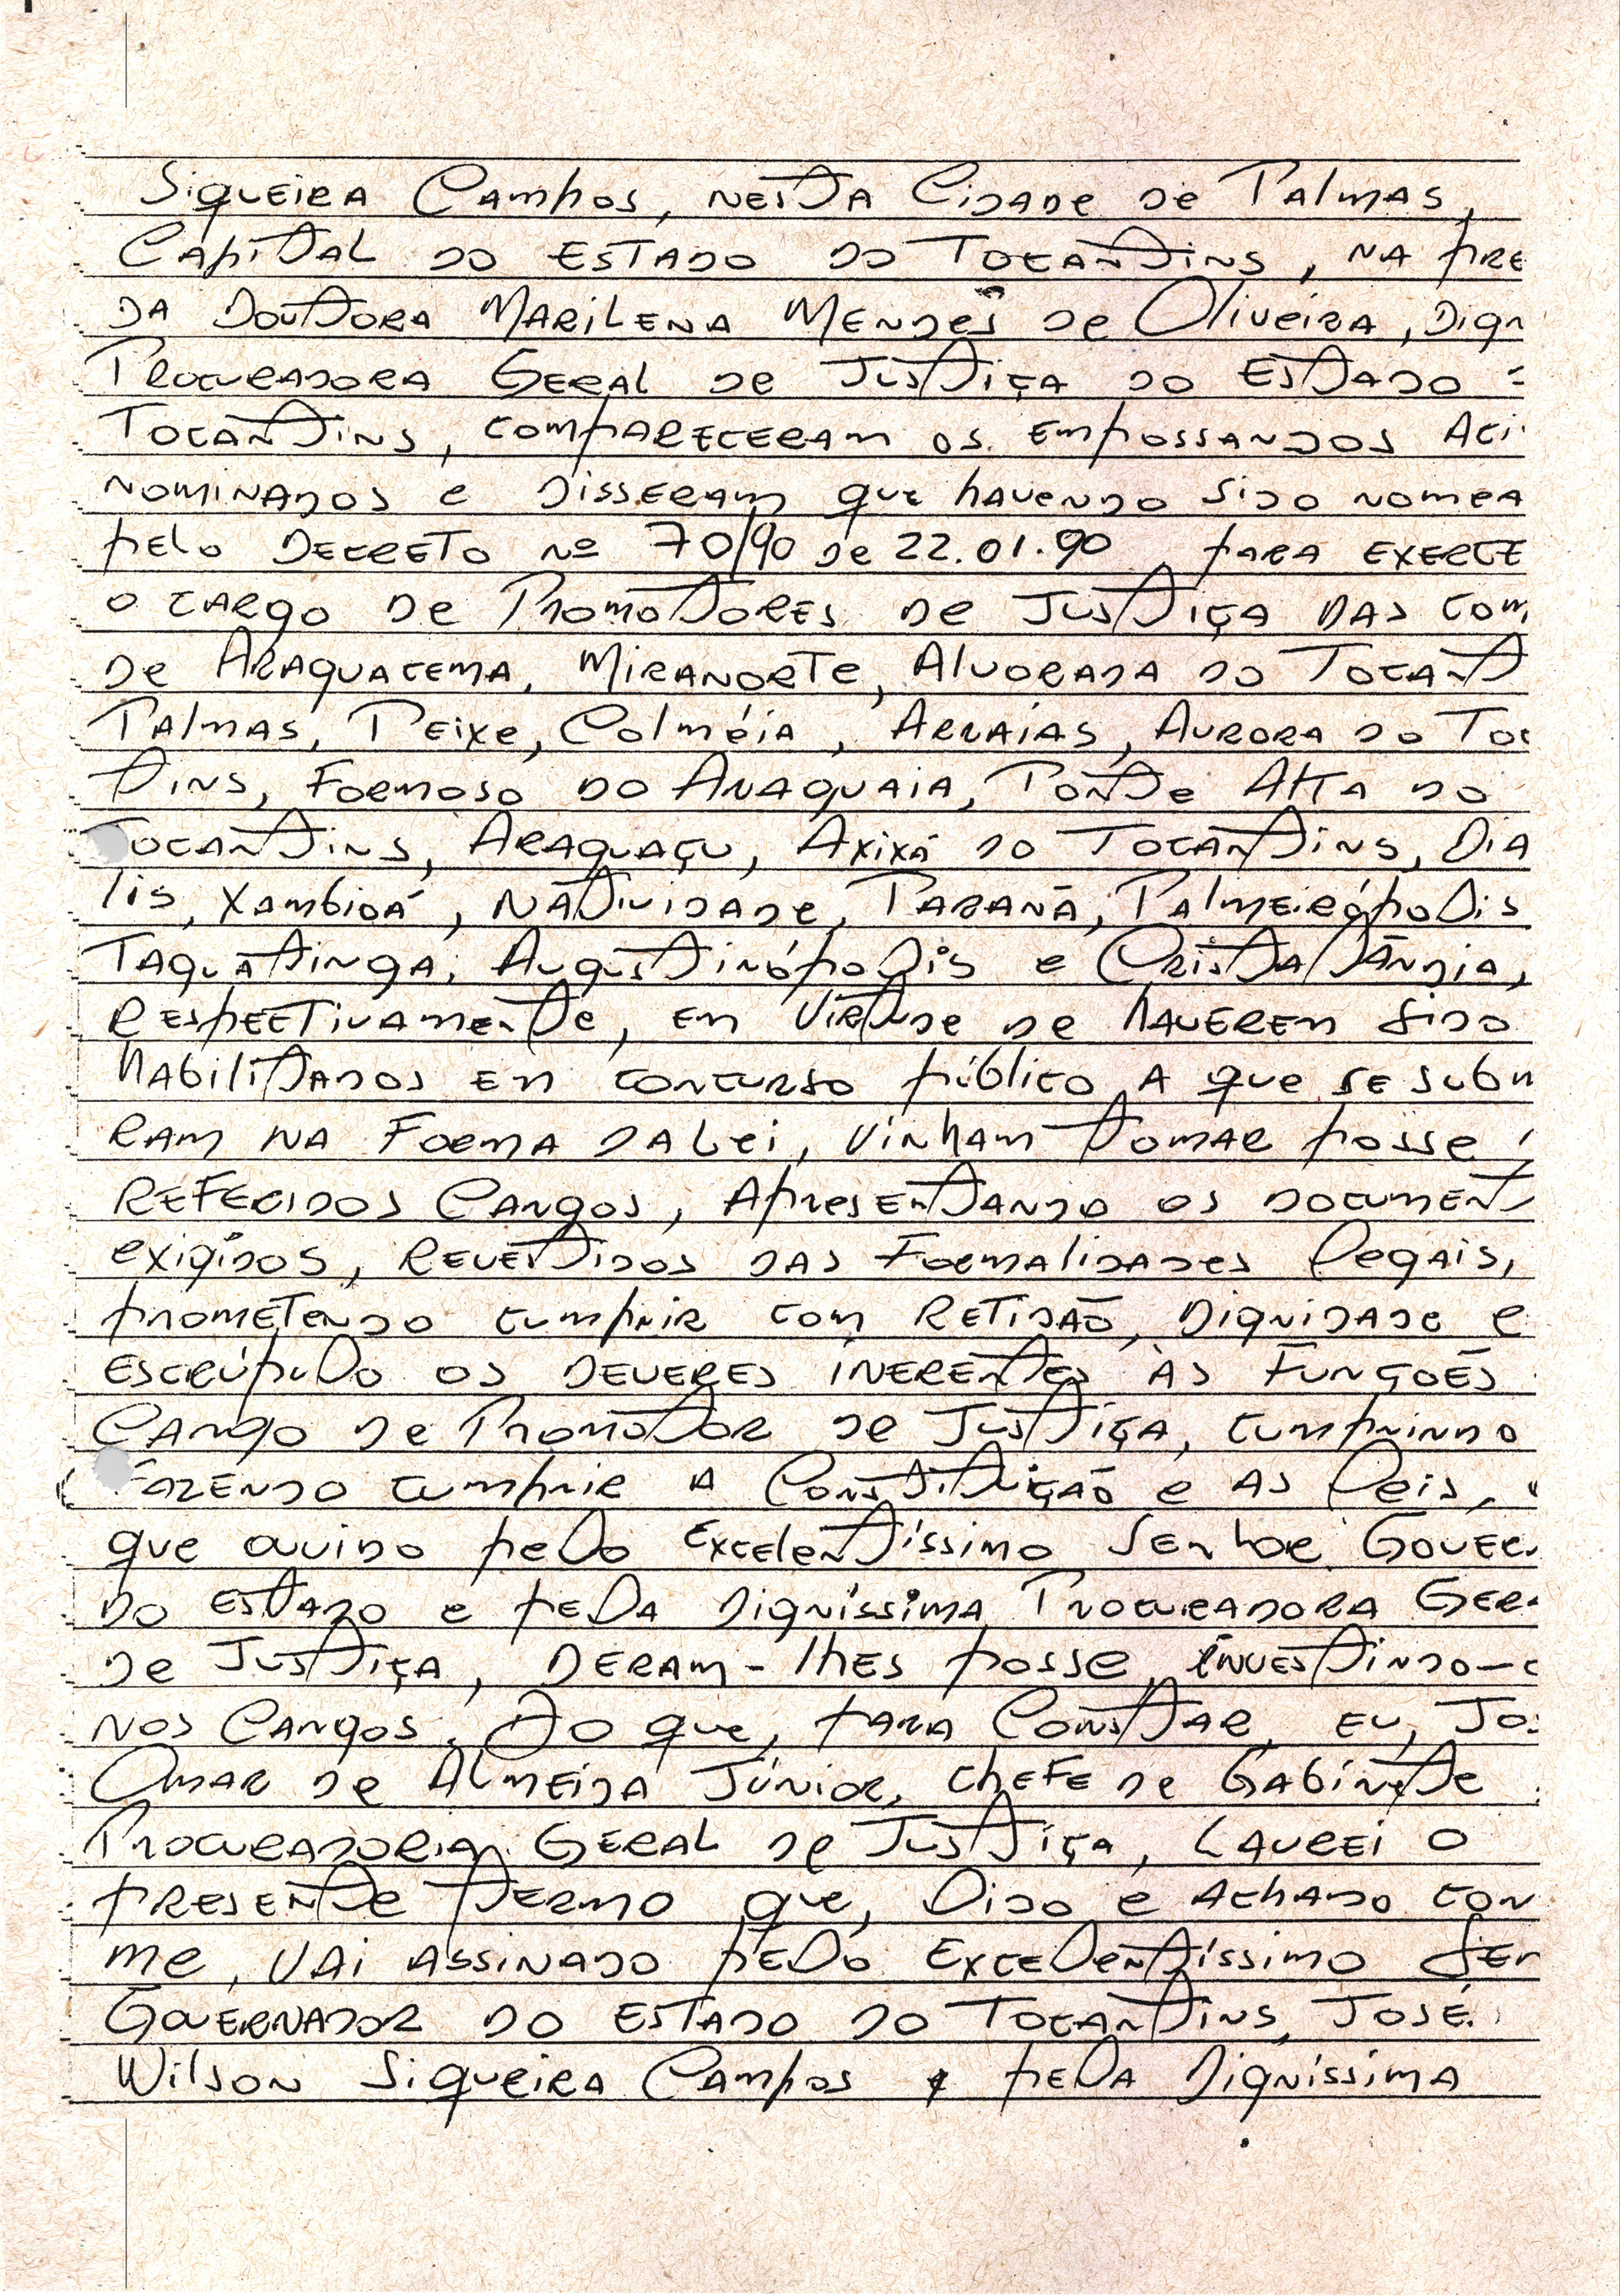 Siqueira Campos, nesta Cidade de Palmas,
Capital do Estado do Tocantins, na pre
da Doutora Marilena Mendes de Oliveira, Dign
Procuradora Geral de Justiça do Estado
Tocantins, compareceram os empossandos aci
nominados e disseram que havendo sido nomea
pelo Decreto nº 70/90 de 22.01.90 para exerce
o cargo de Promotores de Justiça das com
de Araguacema, Miranorte, Alvorada do Tocant
Palmas, Peixe, Colméia, Arraias, Aurora do Toc
tins, Formoso do Araguaia, Ponte Alta do
Tocantins, Araguaçu, Axixá do Tocantins, Dia
lis, Xambioá, Natividade, Paranã, Palmeirópolis
Taguatinga, Augustinópolis e Cristalândia,
respectivamente, em virtude de haverem sido
habilitados em concurso público a que se subm
ram na forma da Lei, vinham tomar posse
referidos Cargos, apresentando os document
exigidos, revestidos das formalidades legais,
prometendo cumprir com retidão, dignidade e
escrúpulo os deveres inerentes às funções
Cargo de Promotor de Justiça, cumprindo
fazendo cumprir a Constituição e as leis,
que ouvido pelo Excelentíssimo Senhor Gover
do Estado e pela Digníssima Procuradora Ger
de Justiça, deram-lhes posse, investindo-o
nos Cargos. Do que, para constar, eu, Jo
Omar de Almeida Júnior, chefe de Gabinete
Procuradoria Geral de Justiça, lavrei o
presente termo que, lido e achado con
me, vai assinado pelo Excelentíssimo Sen
Governador do Estado do Tocantins, José
Wilson Siqueira Campos e pela Digníssima